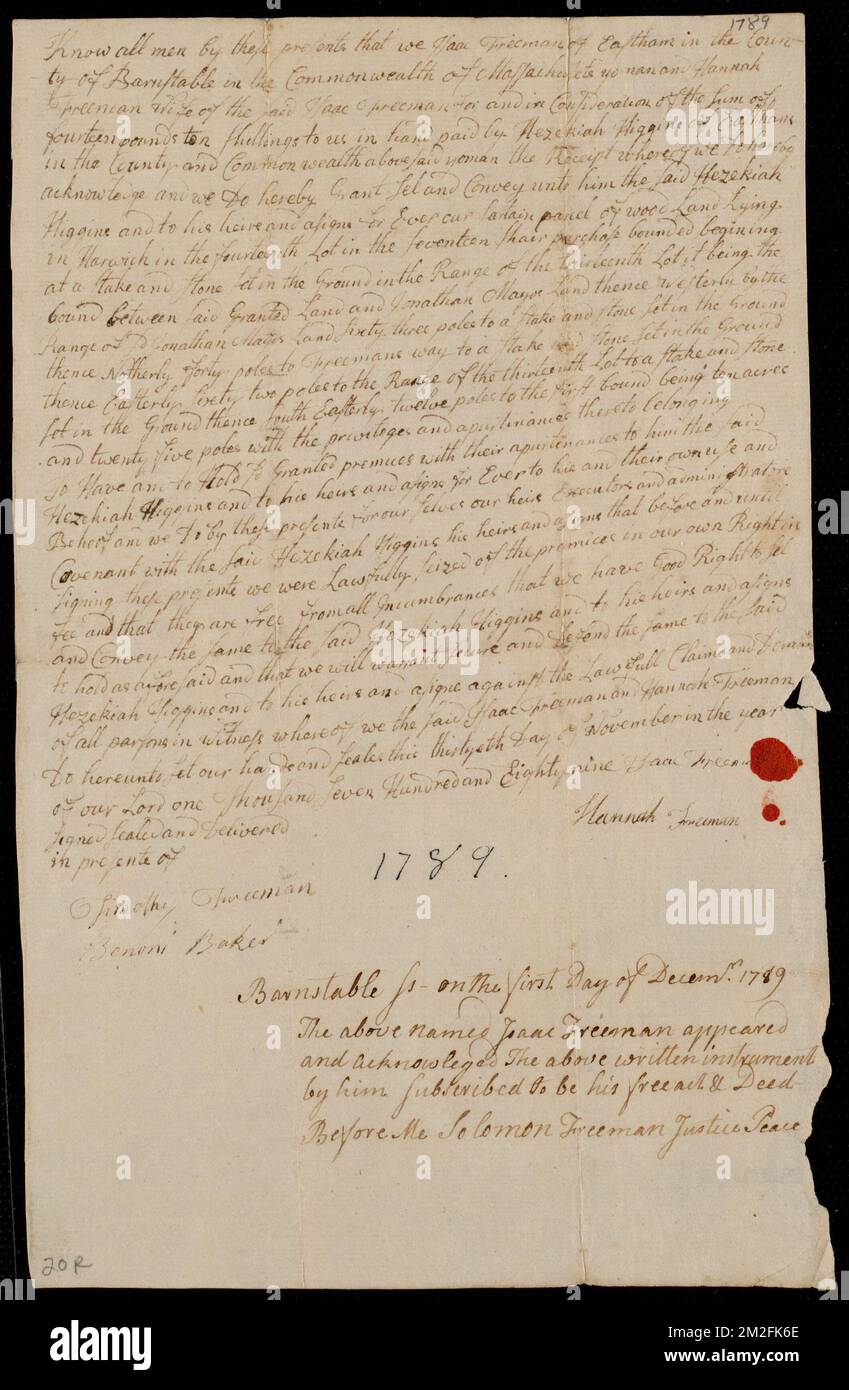 1789
Know all men by these presents that we Isaac Freeman of Eastham in the Coun-
ty of Barnstable in the Commonwealth of Massachusets yoman and Hannah
Freeman Wife of the said Isaac Freeman for and in Consideration of the sum of
fourteen pounds ten shillings to us in hand paid by Hezekiah Higgins of Eastham
in the County and Common wealth abovesaid yoman the Receipt whereof we do hereby
acknowledge and we Do hereby Grant Sel and Convey unto him the said Hezekiah
Higgins and to his heirs and asigns for Ever our sartain parsel of wood Land Lying
in Harwich in the fourteenth Lot in the seventeen shair purchase bounded begining
at a stake and stone set in the Ground in the Range of the thirteenth Lot it being the
bound between said Granted Land and Jonathan Mayos Land thence westerly by the
Range of sd Jonathan Mayos Land sixty three poles to a stake and stone set in the Ground
thence Northerly forty poles to Freemans way to a stake and stone set in the Ground
thence Easterly sixty two poles to the Range of the thirteenth Lot to a stake and stone
set in the Ground thence south Easterly twelve poles to the first bound being ten acres
and twenty five poles with the privileges and apurtinances thereto belonging
to Have and to Hold sd Granted premices with their apurtenances to him the said
Hezekiah Higgins and to his heirs and asigns for Ever to his and their own use and
Behoof and we Do by these presents for our selves our heirs Executors and administrators
Covenant with the said Hezekiah Higgins his heirs and asigns that before and until
signing these presents we were Lawfully seized of the premices in our own Right in
fee and that they are Free from all Incumbrances that we have Good Right to sel
and Convey the same to the said Hezekiah Higgins and to his heirs and asigns
to hold as afore said and that we will warrant secure and Defend the same to the said
Hezekiah Higgins and to his heirs and asigns against the Lawfull Claims and Deman
of all parsons in witness where of we the said Isaac Freeman and Hannah Freeman
Do hereunto set our hands and seales this thirtyeth Day of November in the year
of our Lord one thousand seven Hundred and Eighty nine Isaac Freeman
Signed sealed and Delivered
Hannah Freeman
in presents of
1789.
Timothy Freeman
Benoni Baker
Barnstable Ss- on the first Day of Decemr. 1789
The above named Isaac Freeman appeared
and acknowleged The above written instrument
by him Subscribed to be his free act & Deed-
Before Me Solomon Freeman Justice Peace
20R
alamy
Image ID: 2M2FK6E
www.alamy.com